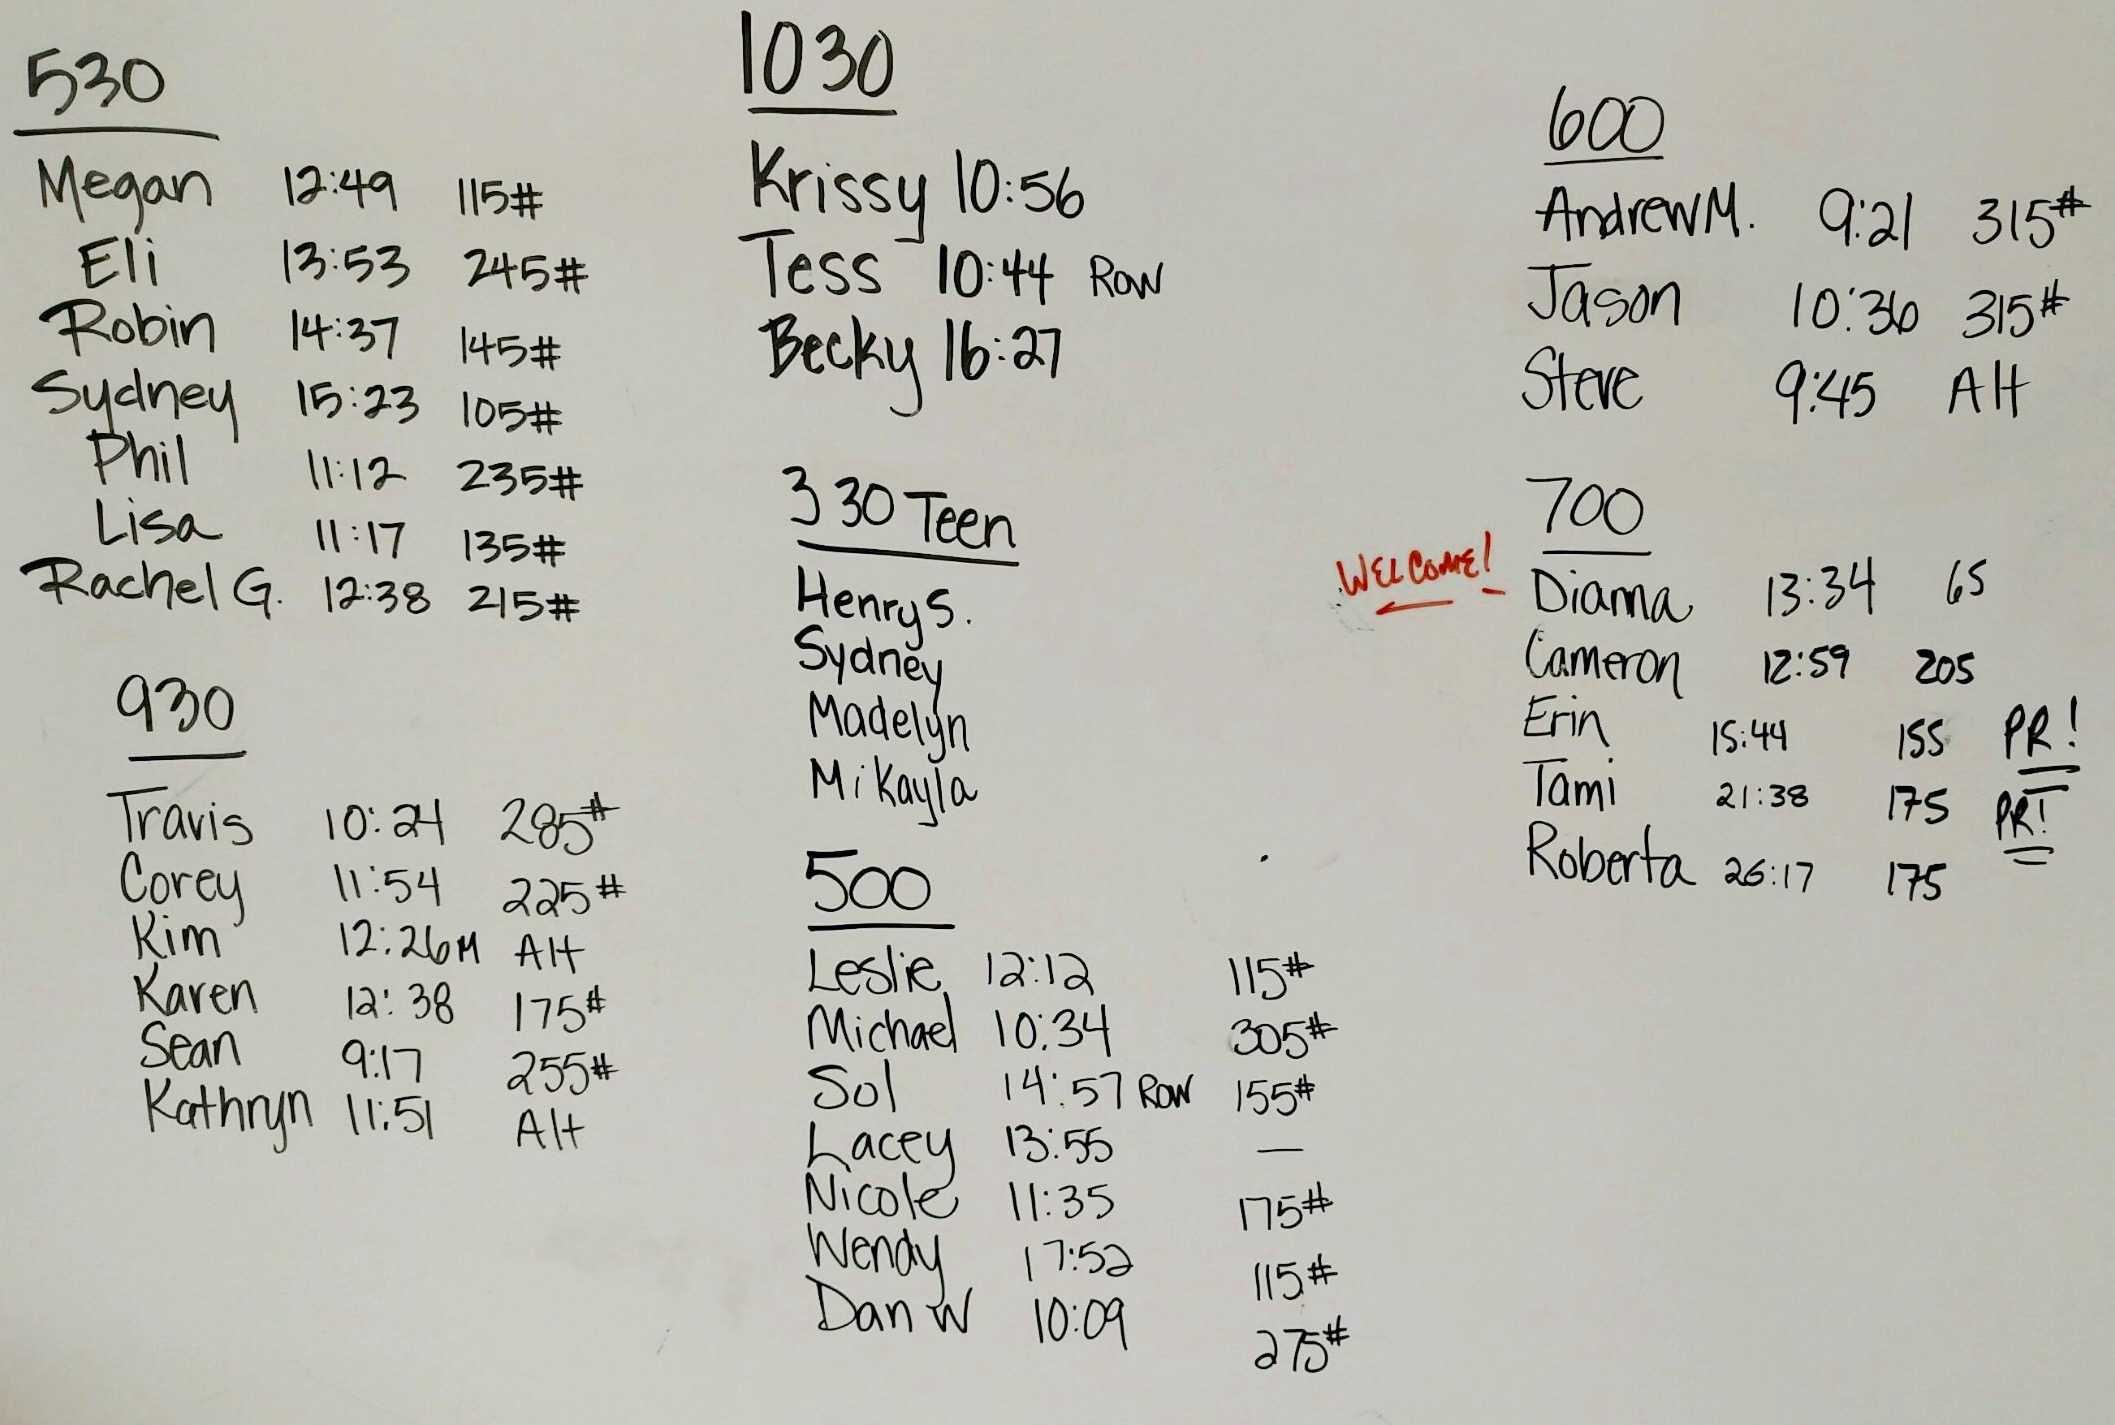 530
Megan 12:49 115#
Eli 13:53 245#
Robin 14:37 145#
Sydney 15:23 105#
Phil 11:12 235#
Lisa 11:17 135#
Rachel G. 12:38 215#
930
Travis 10:24 285#
Corey 11:54 225#
Kim 12:26M Alt
Karen 12:38 175#
Sean 9:17 255#
Kathryn 11:51 Alt
1030
Krissy 10:56
Tess 10:44 Row
Becky 16:27
330 Teen
Henry S.
Sydney
Madelyn
Mikayla
500
Leslie 12:12 115#
Michael 10:34 305#
Sol 14:57 Row 155#
Lacey 13:55 —
Nicole 11:35 175#
Wendy 17:52 115#
Dan W 10:09 275#
600
Andrew M. 9:21 315#
Jason 10:36 315#
Steve 9:45 Alt
700
WELCOME! - Dianna 13:34 65
Cameron 12:59 205
Erin 15:44 155 PR!
Tami 21:38 175 PR!
Roberta 26:17 175